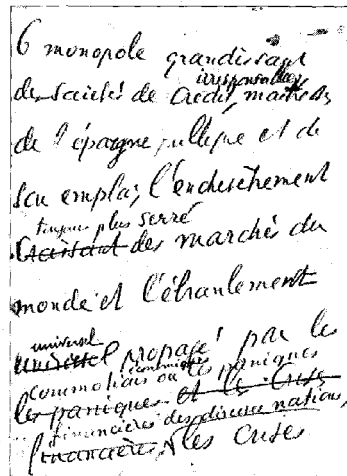 6 monopole grandissant
irresponsables
des Sociétés de Crédit, maîtresses
de l'épargne publique et de
son emploi; l'enchevêtrement
toujours plus serré
croissant des marchés du
monde et l'ébranlement
universel
universel propagé par les
commotions ou les paniques
les paniques et les Crises
financières des diverses nations,
financières, les Crises